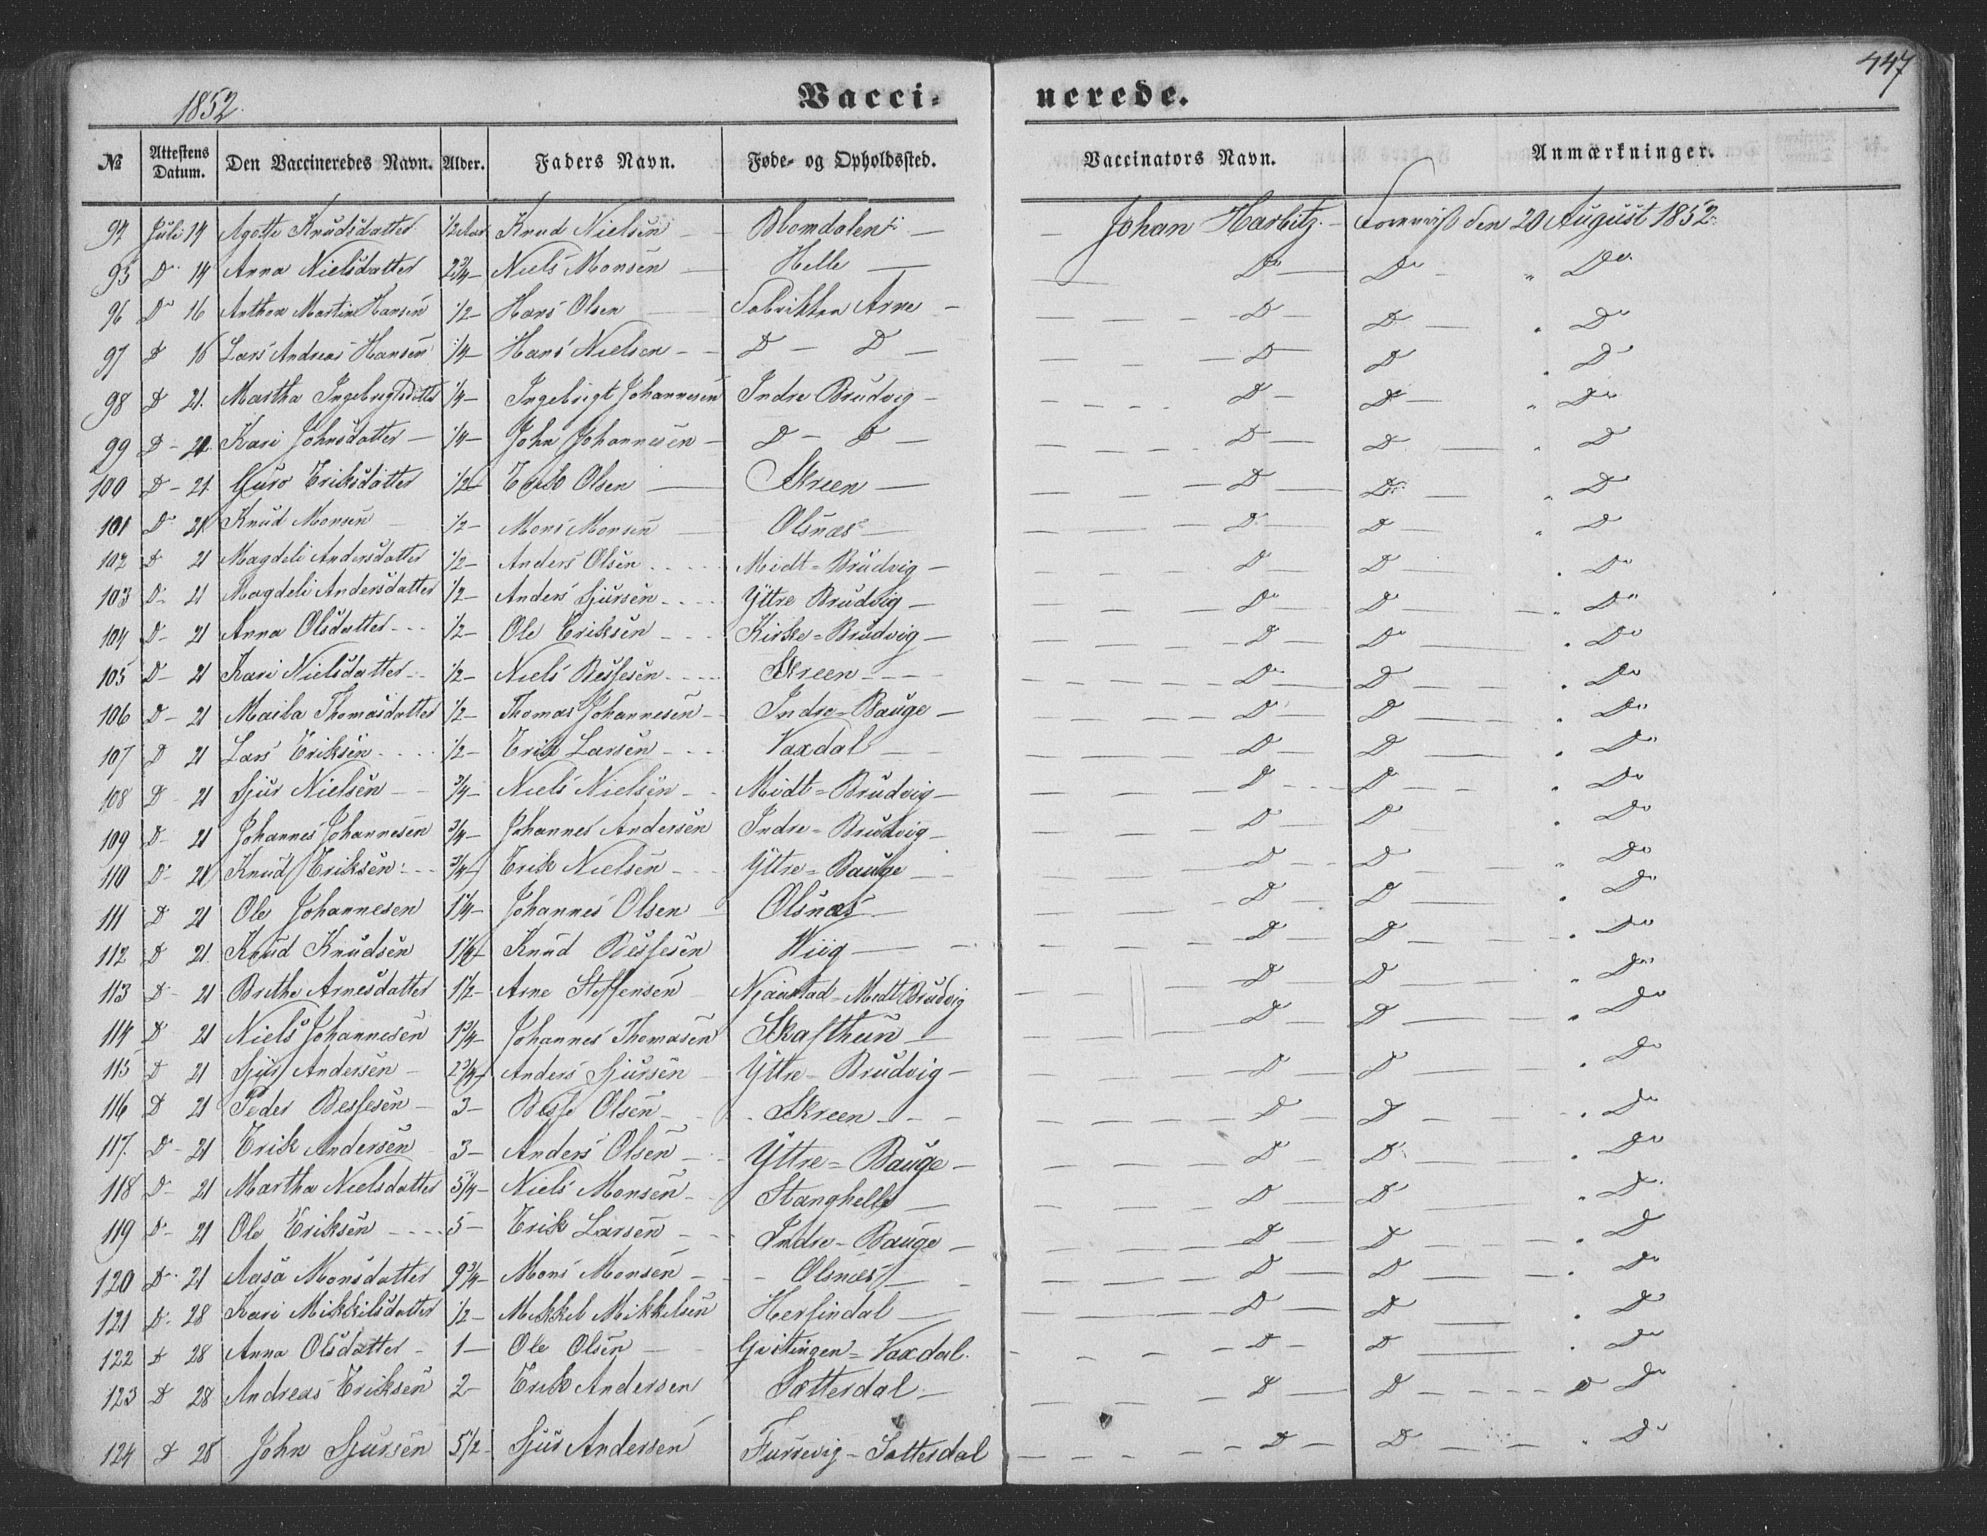 447
1852.
Vacci- nerede.
No Attestens Datum. Den Vaccineredes Navn. Alder. Faders Navn. Føde- og Opholdssted. Vaccinators Navn. Anmærkninger.
94 Juli 14 Agathe Knudsdatter 1/2 Aar Knud Nielsen Blomdalen Johan Harbitz. Foreviist den 20 August 1852.
95 Do 14 Anna Nielsdatter 2 3/4 Niels Monsen Helle Do Do " Do
96 Do 16 Anthon Martin Hansen 1/2 Hans Olsen Fabrikken Arne D D " Do
97 D 16 Lars Andreas Hansen 1/4 Hans Nielsen D D D D " D
98 D 21. Martha Ingebrigtsdatter 1/4 Ingebrigt Johannesen Indre Brudvig D D " Do
99 D 21. Kari Johnsdatter 1/4 John Johannesen D D D D " D
100 D 21 Guro Eriksdatter 1/2 Erik Olsen Skreen D D " D
101 D 21 Knud Monsen 1/2 Mons Monsen Olsnæs D D " D
102 D 21 Magdeli Andersdatter 1/2 Anders Olsen Midt-Brudvig D D " Do
103 D 21 Magdeli Andersdatter 1/2 Anders Sjursen Yttre Brudvig D D " Do
104 D 21 Anna Olsdatter 1/2 Ole Eriksen Kirke-Brudvig D D " Do
105 D 21 Kari Nielsdatter 1/2 Niels Bessesen Skreen D D " Do
106 D 21 Maila Thomasdatter 1/2 Thomas Johannesen Indre-Bauge D D " Do
107 D 21 Lars Eriksen 1/2 Erik Larsen Vaxdal D D " Do
108 D 21 Sjur Nielsen 3/4 Niels Nielsen Midt-Brudvig D D " Do
109 D 21 Johannes Johannesen 3/4 Johannes Andersen Indre-Brudvig D D " Do
110 D 21 Knud Eriksen 3/4 Erik Nielsen Yttre-Bauge D D " Do
111 D 21 Ole Johannesen 1 1/4 Johannes Olsen Olsnæs D D " Do
112 D 21. Knud Knudsen Knud Bessesen Wiig D D " Do
113 D 21 Brithe Arnesdatter 1 1/2 Arne Steffensen Njaastad-Midt Brudvig D D " Do
114 D 21 Niels Johannesen 1 3/4 Johannes Thomasen Skafthun D D " Do
115 D 21 Sjur Andersen 2 3/4 Anders Sjursen Yttre-Brudvig D D " Do
116 D 21 Peder Bessesen 3 Besse Olsen Skreen D D " Do
117. D 21 Erik Andersen 3 Anders Olsen Yttre-Bauge D D " Do
118 D 21 Martha Nielsdatter Niels Monsen Stanghelle D D " Do
119 D 21 Ole Eriksen 5 Erik Larsen Indre-Bauge D D " D
120 D 21 Aasa Monsdatter 9 3/4 Mons Monsen Olsnæs D D " Do
121 D 28 Kari Mikkilsdatter 1/2 Mikkel Mikkelsen Herfindal D D " Do
122 D 28 Anna Olsdatter 1 Ole Olsen Gistingen-Vaxdal. D D " Do
123 D 28 Andreas Eriksen 2 Erik Andersen Sætterdal D D " Do
124 D 28 John Sjursen 5 1/2 Sjur Andersen Fursevig-Sætterdal D D " Do